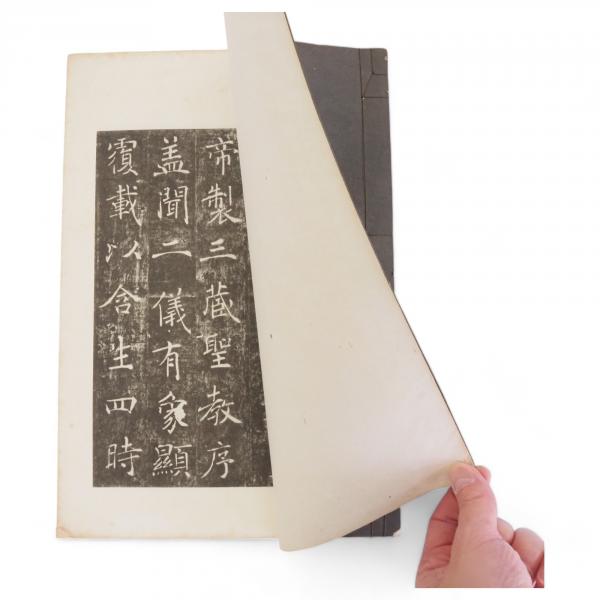 帝製三蔵聖教序
盖聞二儀有象顯
覆載以含生四時